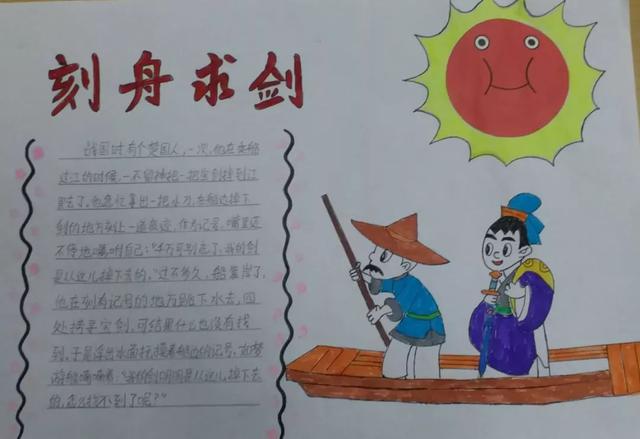 刻舟求剑
战国时有个楚国人,一次,他在乘船
过江的时候,一不留神把一把宝剑掉到江
里去了。他急忙拿出一把小刀,在船边掉下
剑的地方刻上一道痕迹,作为记号,嘴里还
不停地嘱咐自己:"千万可别忘了,我的剑
是从这儿掉下去的。"过不多久,船靠岸了,
他在刻有记号的地方跳下水去,四
处捞寻宝剑,可结果什么也没有找
到,于是浮出水面,摸着船边的记号,
喃喃着:"我的剑明明是从这儿掉下去
的,怎么找不到了呢?"